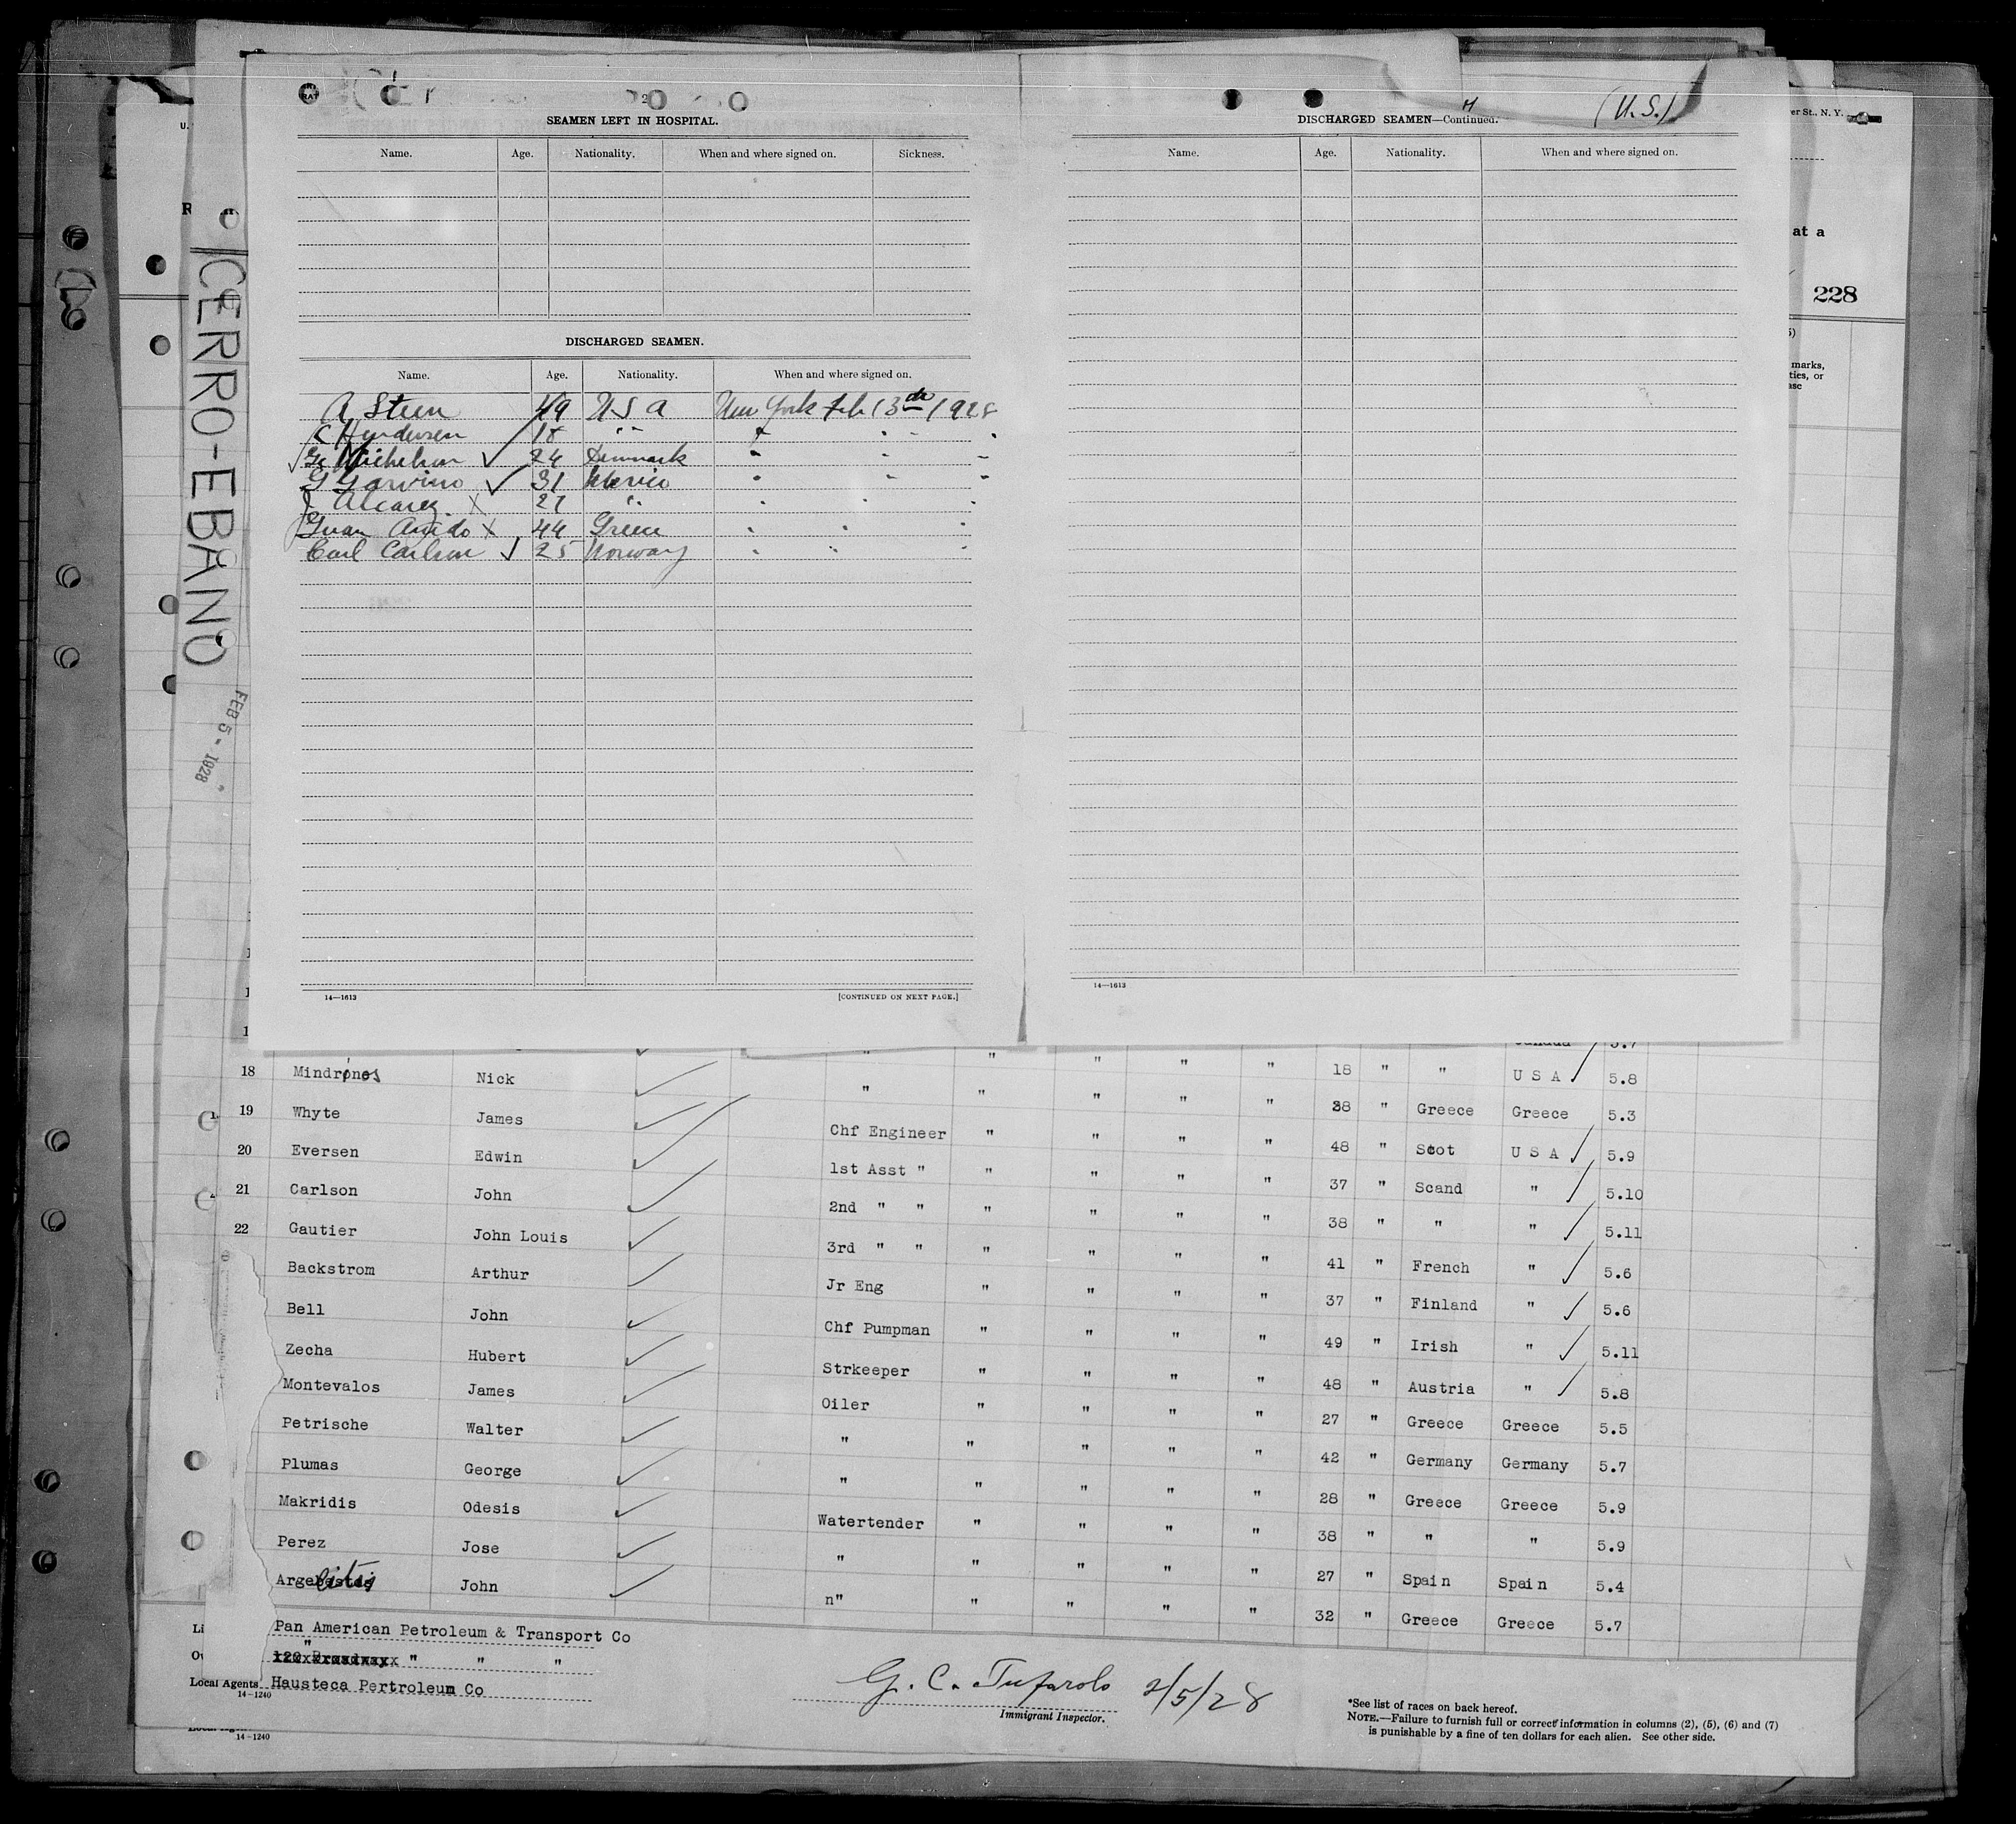 SEAMEN LEFT IN HOSPITAL.
Name. Age. Nationality. When and where signed on. Sickness.
DISCHARGED SEAMEN.
Name. Age. Nationality. When and where signed on.
A Steen 49 U S A New York Feb 13 1928
C Hendersen 18 " "
Michelson 24 Denmark " " "
G Garvino 31 Mexico " " "
J Alcarez X 27 " " " "
Juan Amido X 44 Greece " " "
Carl Carlson 25 Norway " " "
14—1613 [CONTINUED ON NEXT PAGE.]
DISCHARGED SEAMEN—Continued.
(U.S.)
Name. Age. Nationality. When and where signed on.
14—1613
er St., N. Y.
at a
228
marks,
ties, or
CERRO-EBANO
FEB 5 - 1928
Canada 5.7
18 Mindrinos Nick " " " " " 18 " " U S A 5.8
19 Whyte James Chf Engineer " " " " 38 " Greece Greece 5.3
20 Eversen Edwin 1st Asst " " " " " 48 " Scot U S A 5.9
21 Carlson John 2nd " " " " " " 37 " Scand " 5.10
22 Gautier John Louis 3rd " " " " " " 38 " " " 5.11
Backstrom Arthur Jr Eng " " " " 41 " French " 5.6
Bell John Chf Pumpman " " " " 37 " Finland " 5.6
Zecha Hubert Strkeeper " " " " 49 " Irish " 5.11
Montevalos James Oiler " " " " 48 " Austria " 5.8
Petrische Walter " " " " " 27 " Greece Greece 5.5
Plumas George " " " " " 42 " Germany Germany 5.7
Makridis Odesis Watertender " " " " 28 " Greece Greece 5.9
Perez Jose " " " " " 38 " " " 5.9
John n" " " " " 27 " Spain Spain 5.4
32 " Greece Greece 5.7
Pan American Petroleum & Transport Co
120 Broadway " " "
Local Agents Hausteca Pertroleum Co
14-1240
G. C. Tufarolo 2/5/28
Immigrant Inspector.
*See list of races on back hereof.
NOTE.—Failure to furnish full or correct information in columns (2), (5), (6) and (7)
is punishable by a fine of ten dollars for each alien. See other side.
14-1240